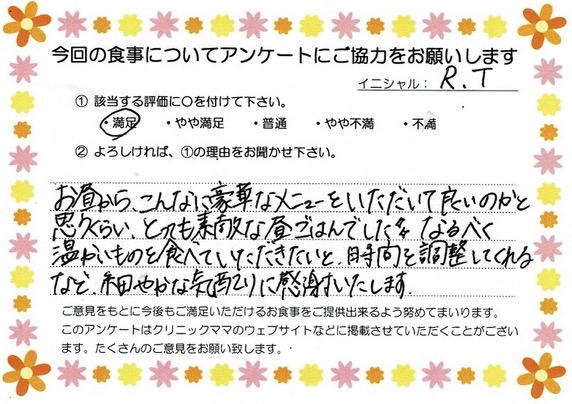 今回の食事についてアンケートにご協力をお願いします
イニシャル： R.T
① 該当する評価に○を付けて下さい。
・満足 ・やや満足 ・普通 ・やや不満 ・不満
② よろしければ、①の理由をお聞かせ下さい。
お昼から、こんなに豪華なメニューをいただいて良いのかと
思うくらい、とても素敵な昼ごはんでした。なるべく
温かいものを食べていただきたいと、時間を調整してくれる
など、細やかな気配りに感謝いたします。
ご意見をもとに今後もご満足いただけるお食事をご提供出来るよう努めてまいります。
このアンケートはクリニックママのウェブサイトなどに掲載させていただくことがござい
ます。たくさんのご意見をお願い致します。